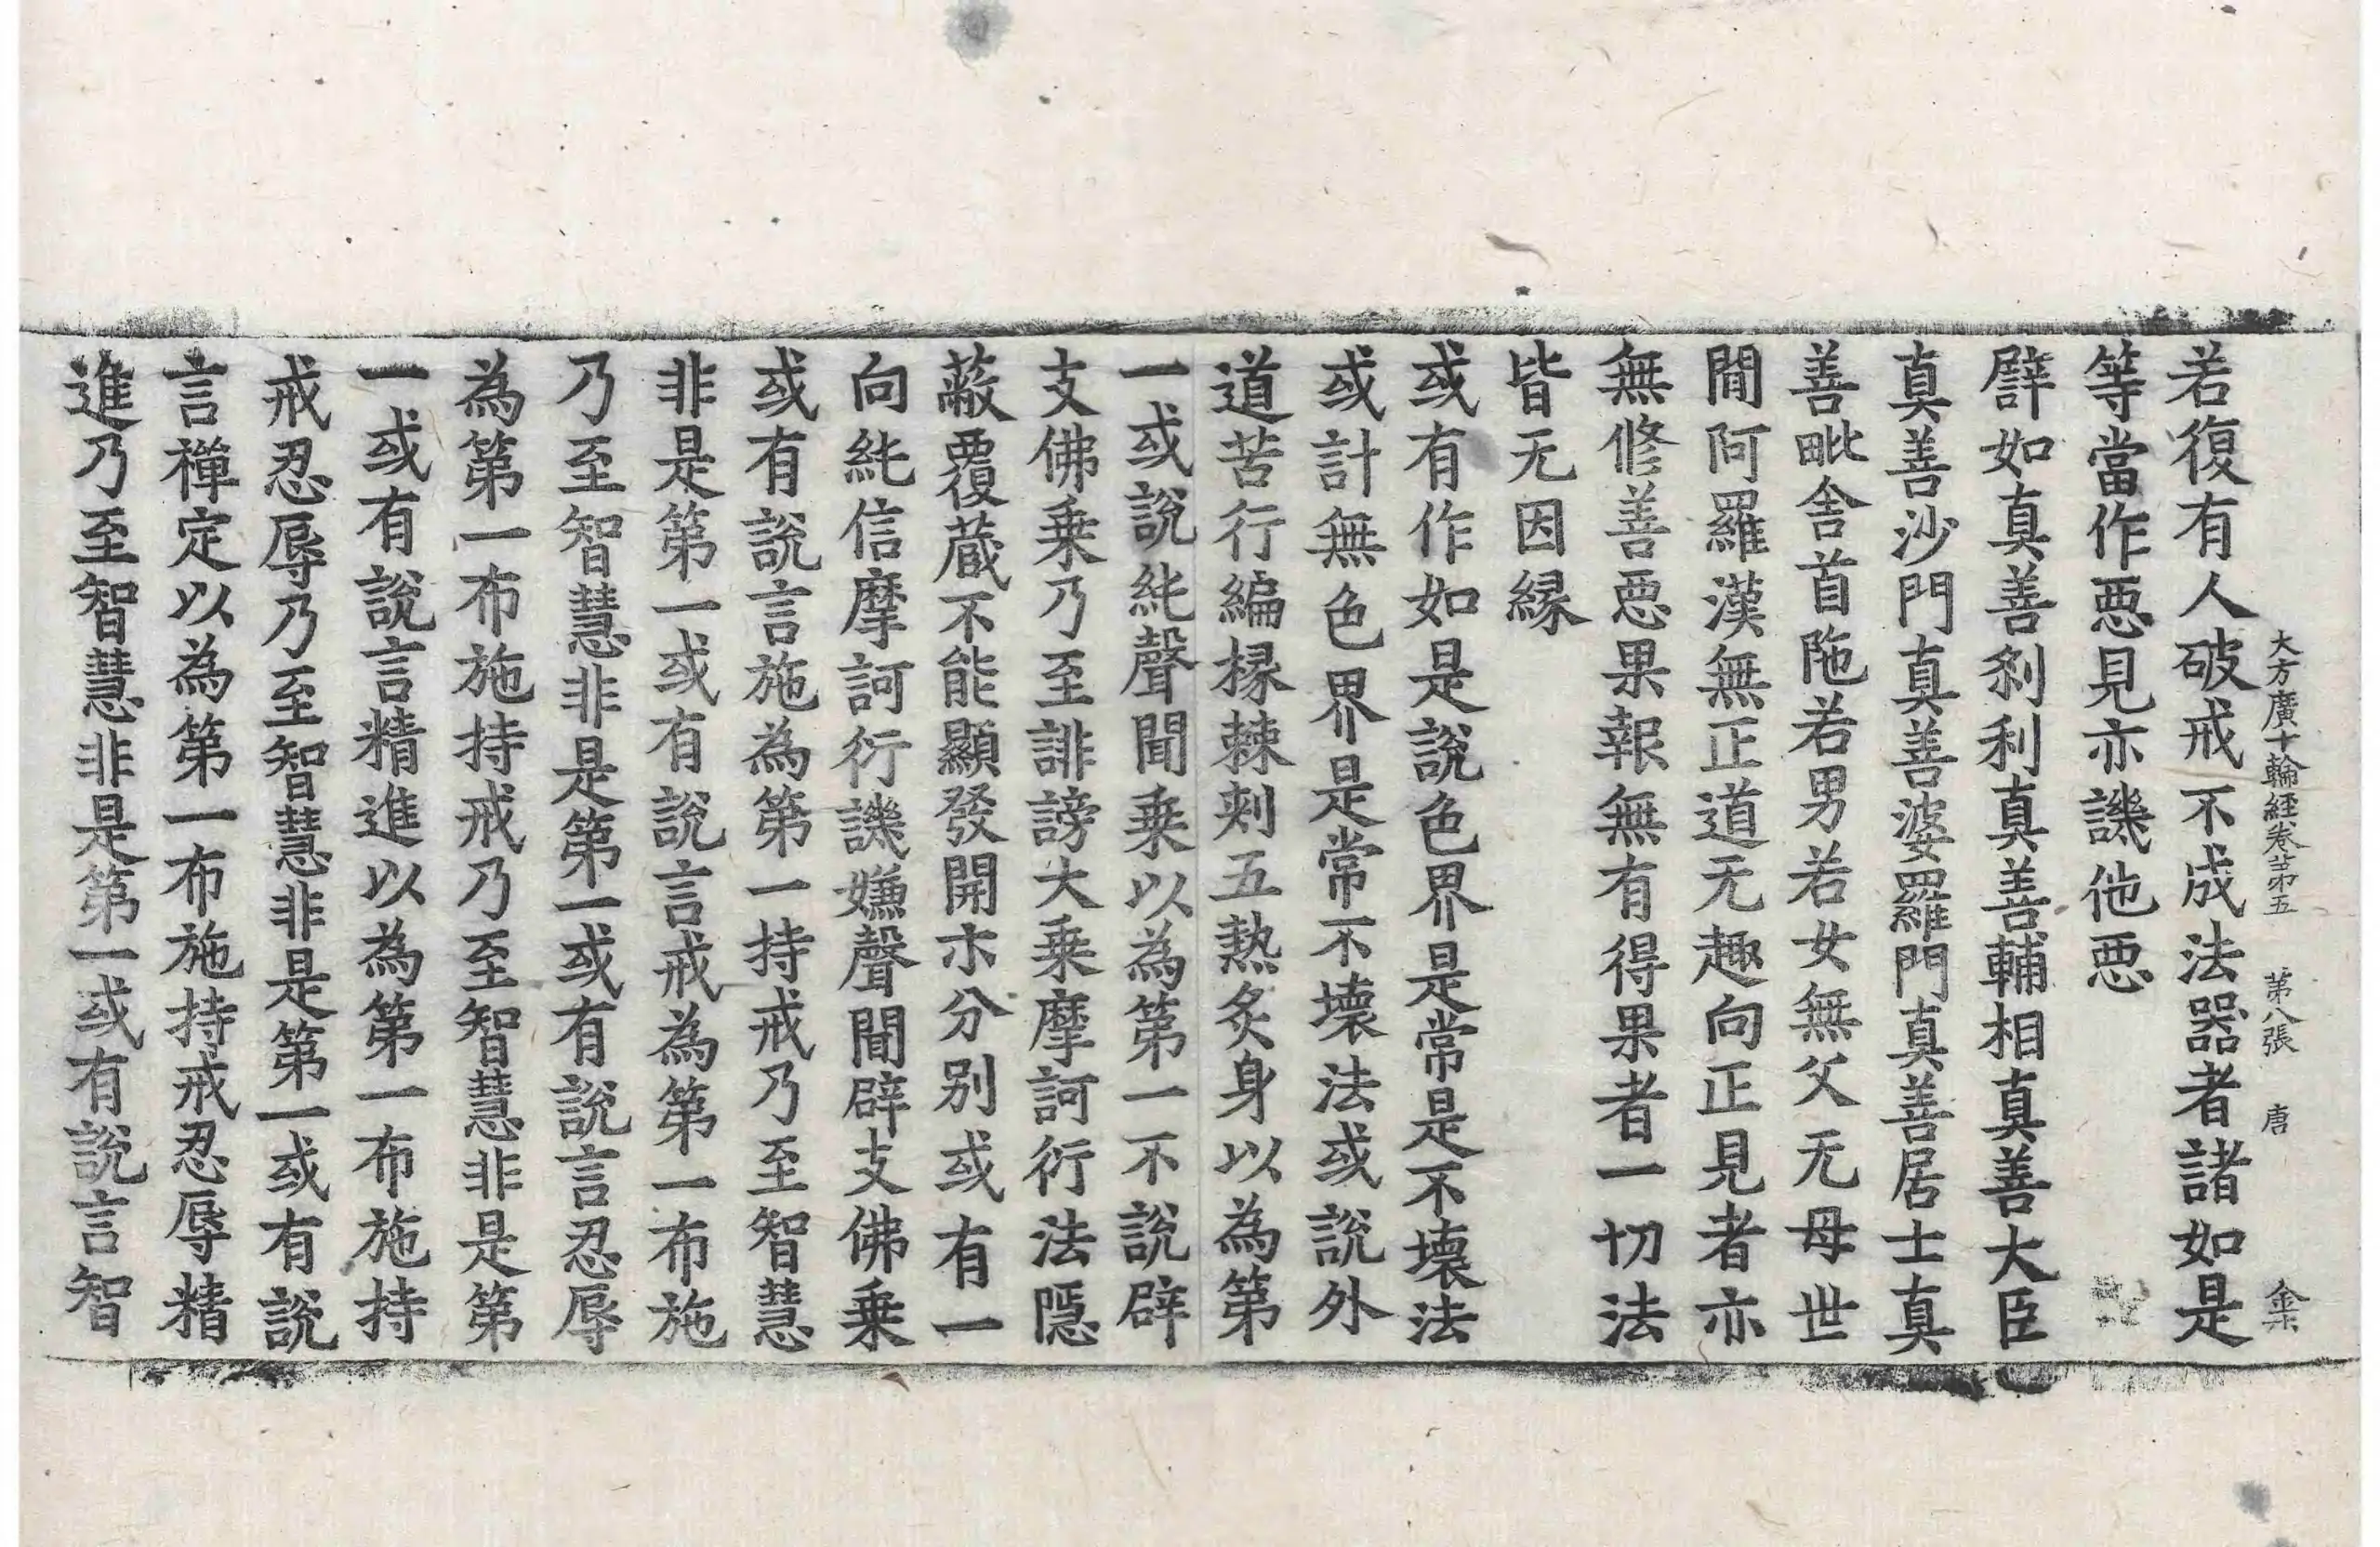 大方廣十輪経卷苐五 苐八張 唐
若復有人破戒不成法器者諸如是
等當作悪見亦譏他悪
譬如真善刹利真善輔相真善大臣
真善沙門真善婆羅門真善居士真
善毗舍首陁若男若女無父无母世
閒阿羅漢無正道无趣向正見者亦
無修善悪果報無有得果者一切法
皆无因縁
或有作如是說色界是常是不壞法
或計無色界是常不壞法或說外
道苦行編椽棘刾五熱炙身以為第
一或說純聲聞乗以為第一不說辟
支佛乗乃至誹謗大乗摩訶衍法隱
蔽覆蔵不能顯發開示分别或有一
向純信摩訶衍譏嫌聲聞辟支佛乗
或有說言施為第一持戒乃至智慧
非是第一或有說言戒為第一布施
乃至智慧非是第一或有說言忍辱
為第一布施持戒乃至智慧非是第
一或有說言精進以為第一布施持
戒忍辱乃至智慧非是第一或有說
言禪定以為第一布施持戒忍辱精
進乃至智慧非是第一或有說言智